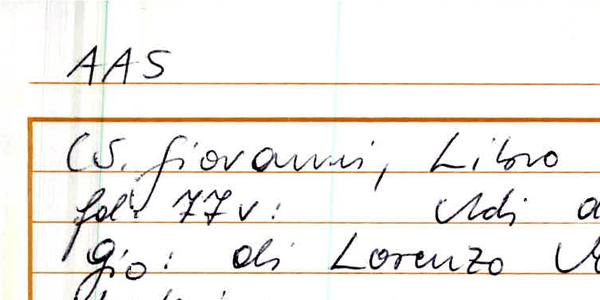 AAS
(S. Giovanni, Libro
fol. 77v: Adi
Gio: di Lorenzo